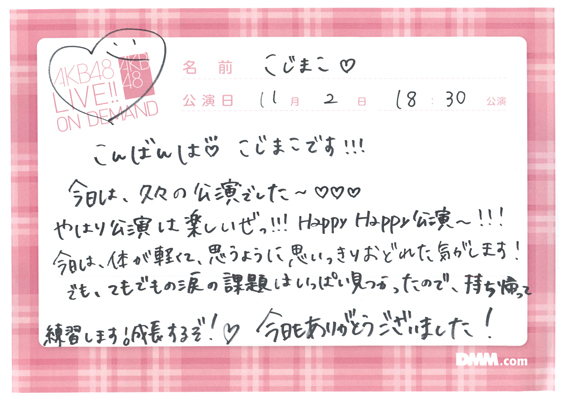 AKB48
LIVE!!
ON DEMAND
AKB
48
名前 こじまこ♡
公演日 11月2日 18:30 公演
こんばんは♡ こじまこです!!!
今日は、久々の公演でした〜♡♡♡
やはり公演は楽しいぜっ!!! Happy Happy公演〜!!!
今日は、体が軽くて、思うように思いっきりおどれた気がします!
でも、でもでもの涙の課題はいっぱい見つかったので、持ち帰って
練習します!成長するぞ!♡ 今日もありがとうございました!
DMM.com